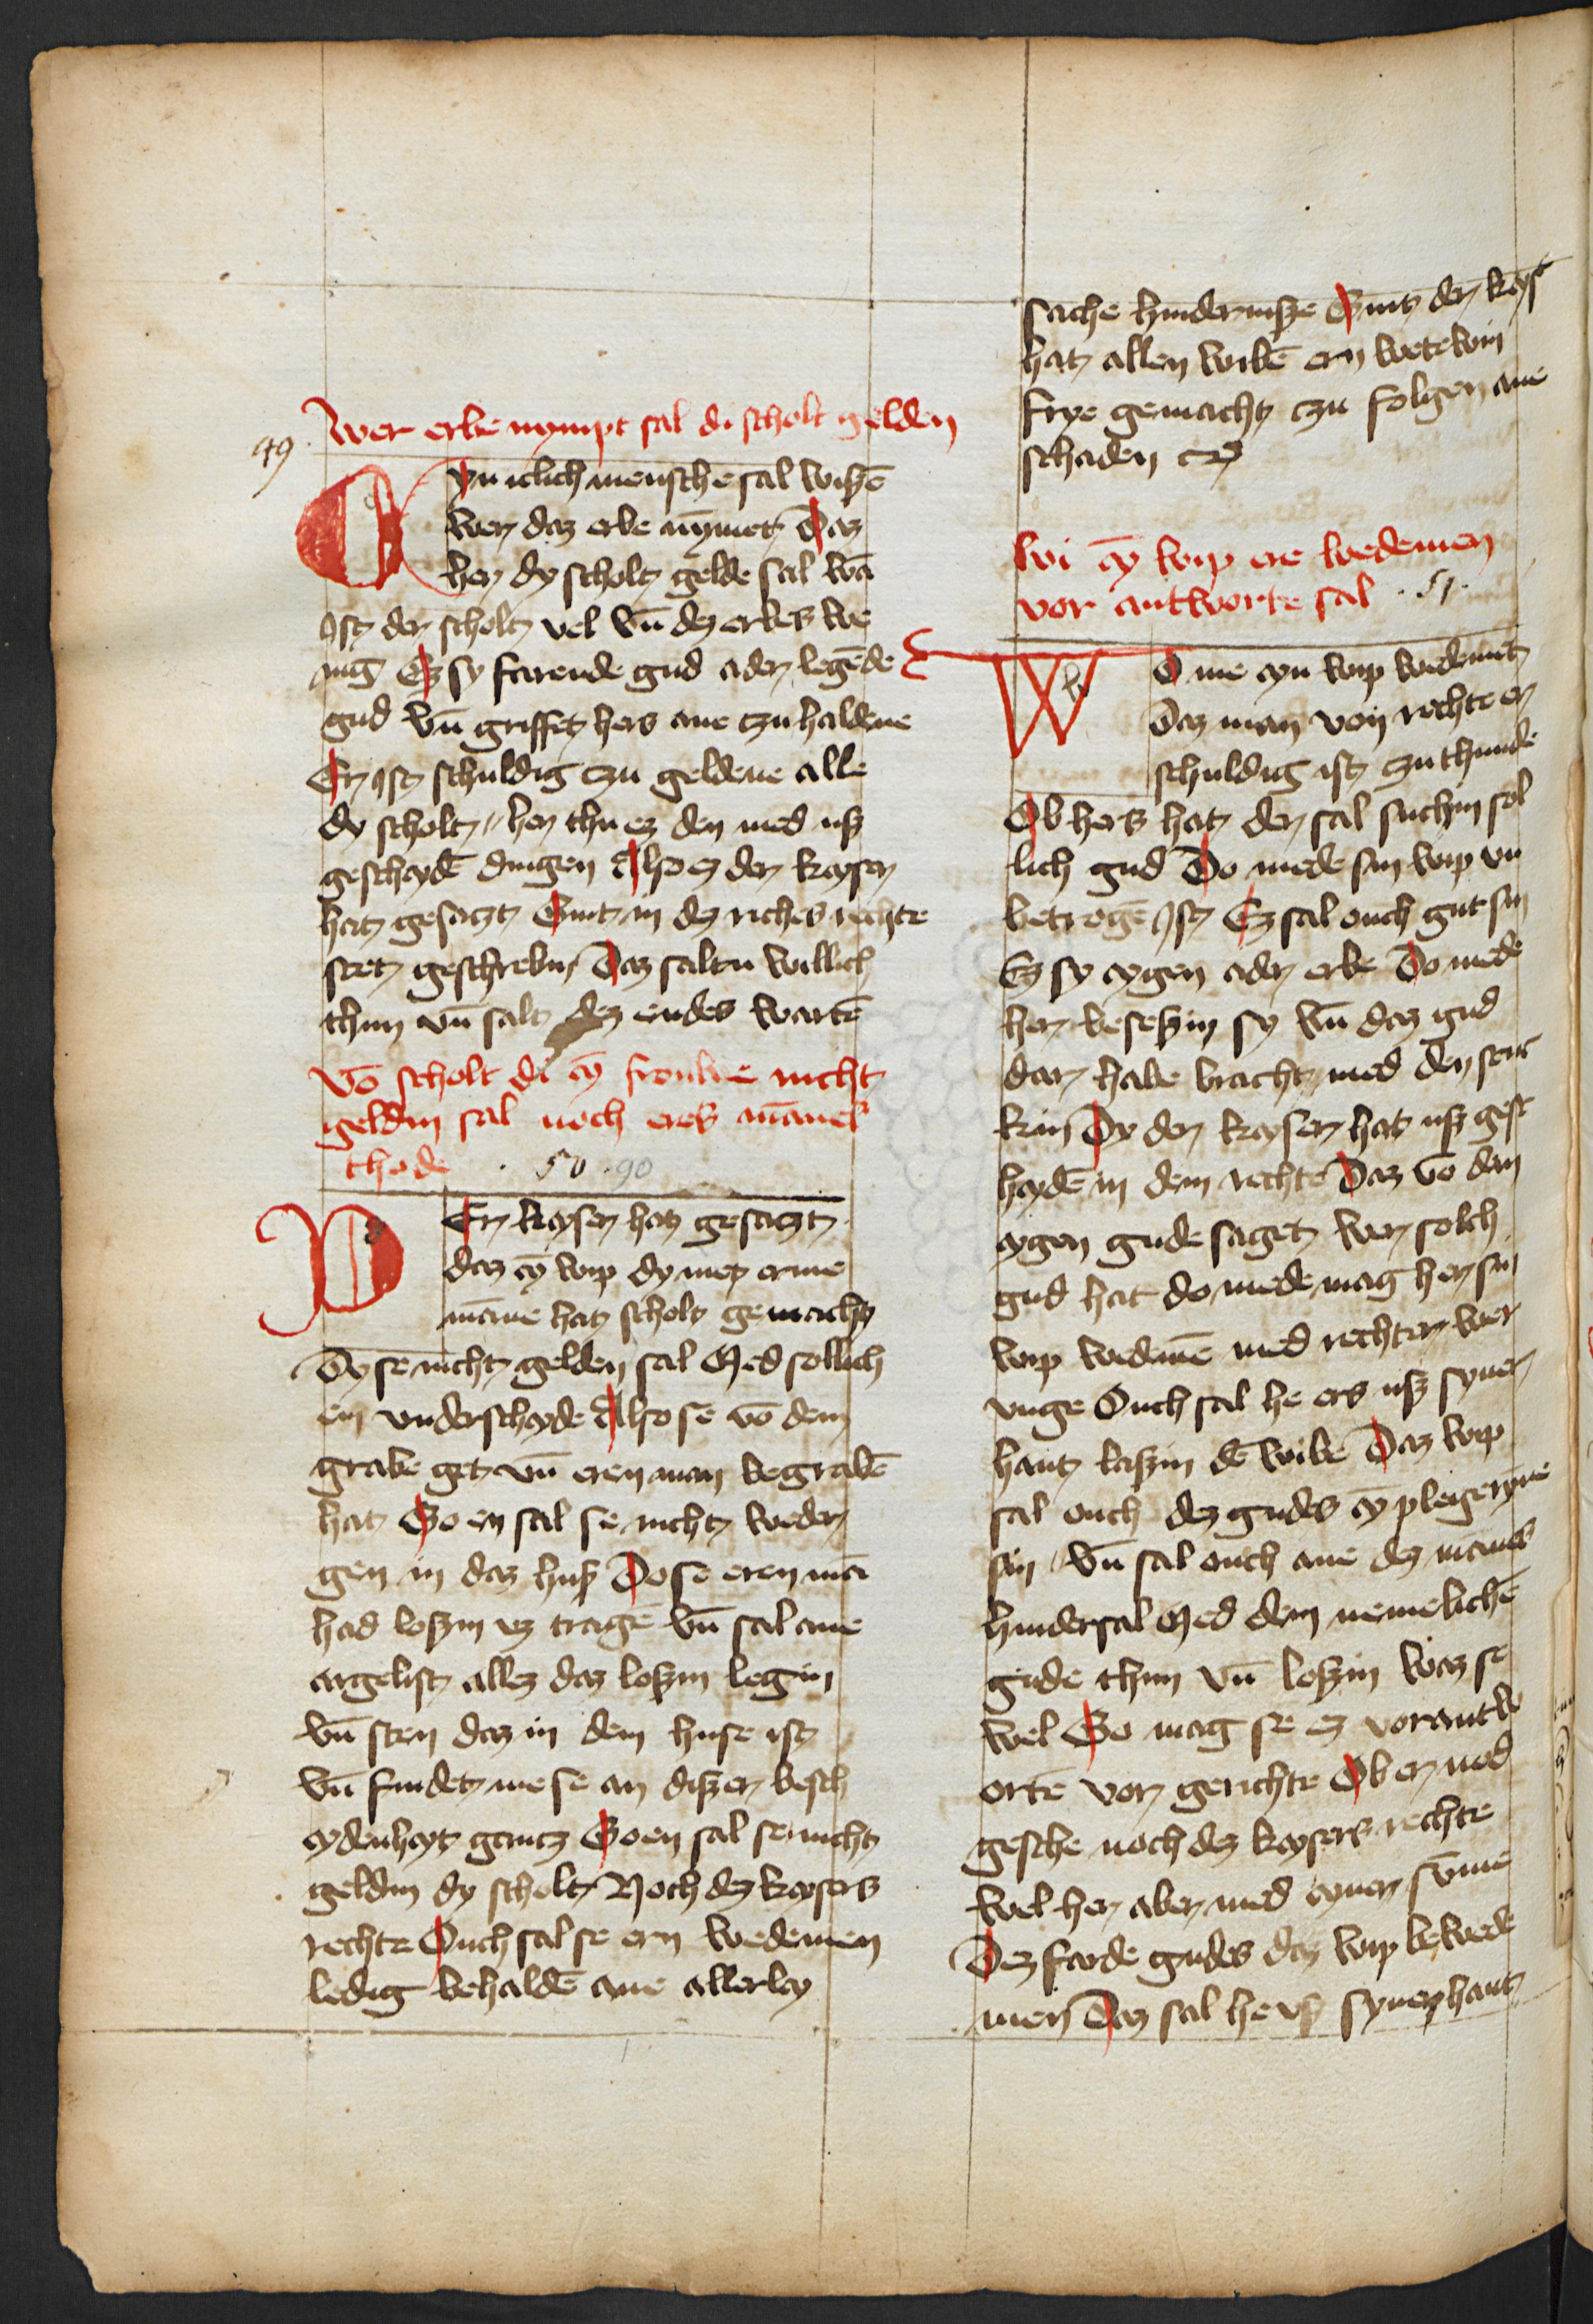 wer erbe nympt sal di scholt gelden
49.
Eyn iclich mensche sal wißē
wer daz erbe nȳmet Daz
her dy scholt gelde sal wā
Ist der scholt vel vn̄ dez erbes we
nig Ez sy farende gud ader legēde
gud vn̄ griffet hers ane czu haldene
Er ist schuldig czu geldene alle
dy scholt her thu ez den med uß
geschydē dingen Also ez der keyser
hat gesaczt Sint in dez riches rechte
stet geschrebin Daz saltu willich
thun vn̄ salt dez endes wartē
Vō scholt di eȳ frouwe nicht
geldin sal noch eres mānes
thode . 50 . 90
DEr keyser hat gesaczt
daz eȳ wip dy mep erme
māne hat scholt gemacht
Dy se nicht gelden sal Med sollich
em vnderscheyde Also se vō dem
grabe get vn̄ eren man begrabē
hat So en sal se nicht weder
gen in daz huß Do se eren mā
had loßin vz tragē vn̄ sal ane
argelist allez daz loßin legin
vn̄ sten daz in dem huse ist
vn̄ findet me se an dißer besch
eydenheyt gancz So en sal se nicht
geldin dy scholt Noch dez keysers
rechte Ouch sal se ern wedemen
ledig behaldē ane allerley
sache hinderniße Sint der keyß
hat allen wibē ern wetewin
frye gemacht czu folgen ane
schaden
Wi eȳ wip ere wedemen
vor antworte sal . 51 .
WO me eyn wip wedemet
Daz man von rechte er
schuldig ist czu thunde
Ob hers hat der sal suchin sol
lich gud Do mede sin wip vn
betrogē ist Ez sal ouch gut sin
Ez sy eygen ader erbe Do mede
her beseßin sy vn̄ daz gud
dar habe bracht med den
kin Dy der keyser hat uß gesc
heydē in dem rechte Daz vō dem
eygen gude saget wer solch
gud hat do mede mag her sin
wip wedmē med rechter wer
unge Ouch sal he ers uß syner
hant laßin dē wibe Daz wip
sal ouch dez gudes eȳ plegerȳne
sin vn̄ sal ouch ane dez mānes
hindersal Med dem nemelichē
gude thun vn̄ loßin waz se
wel So mag se ez vorantw
ortē vor gerichte Ob er nod
geschē noch dez keysers rechte
wel her aber med eyner sūme
Dez farde gudes daz wip bewede
men Daz sal he uß syner hant